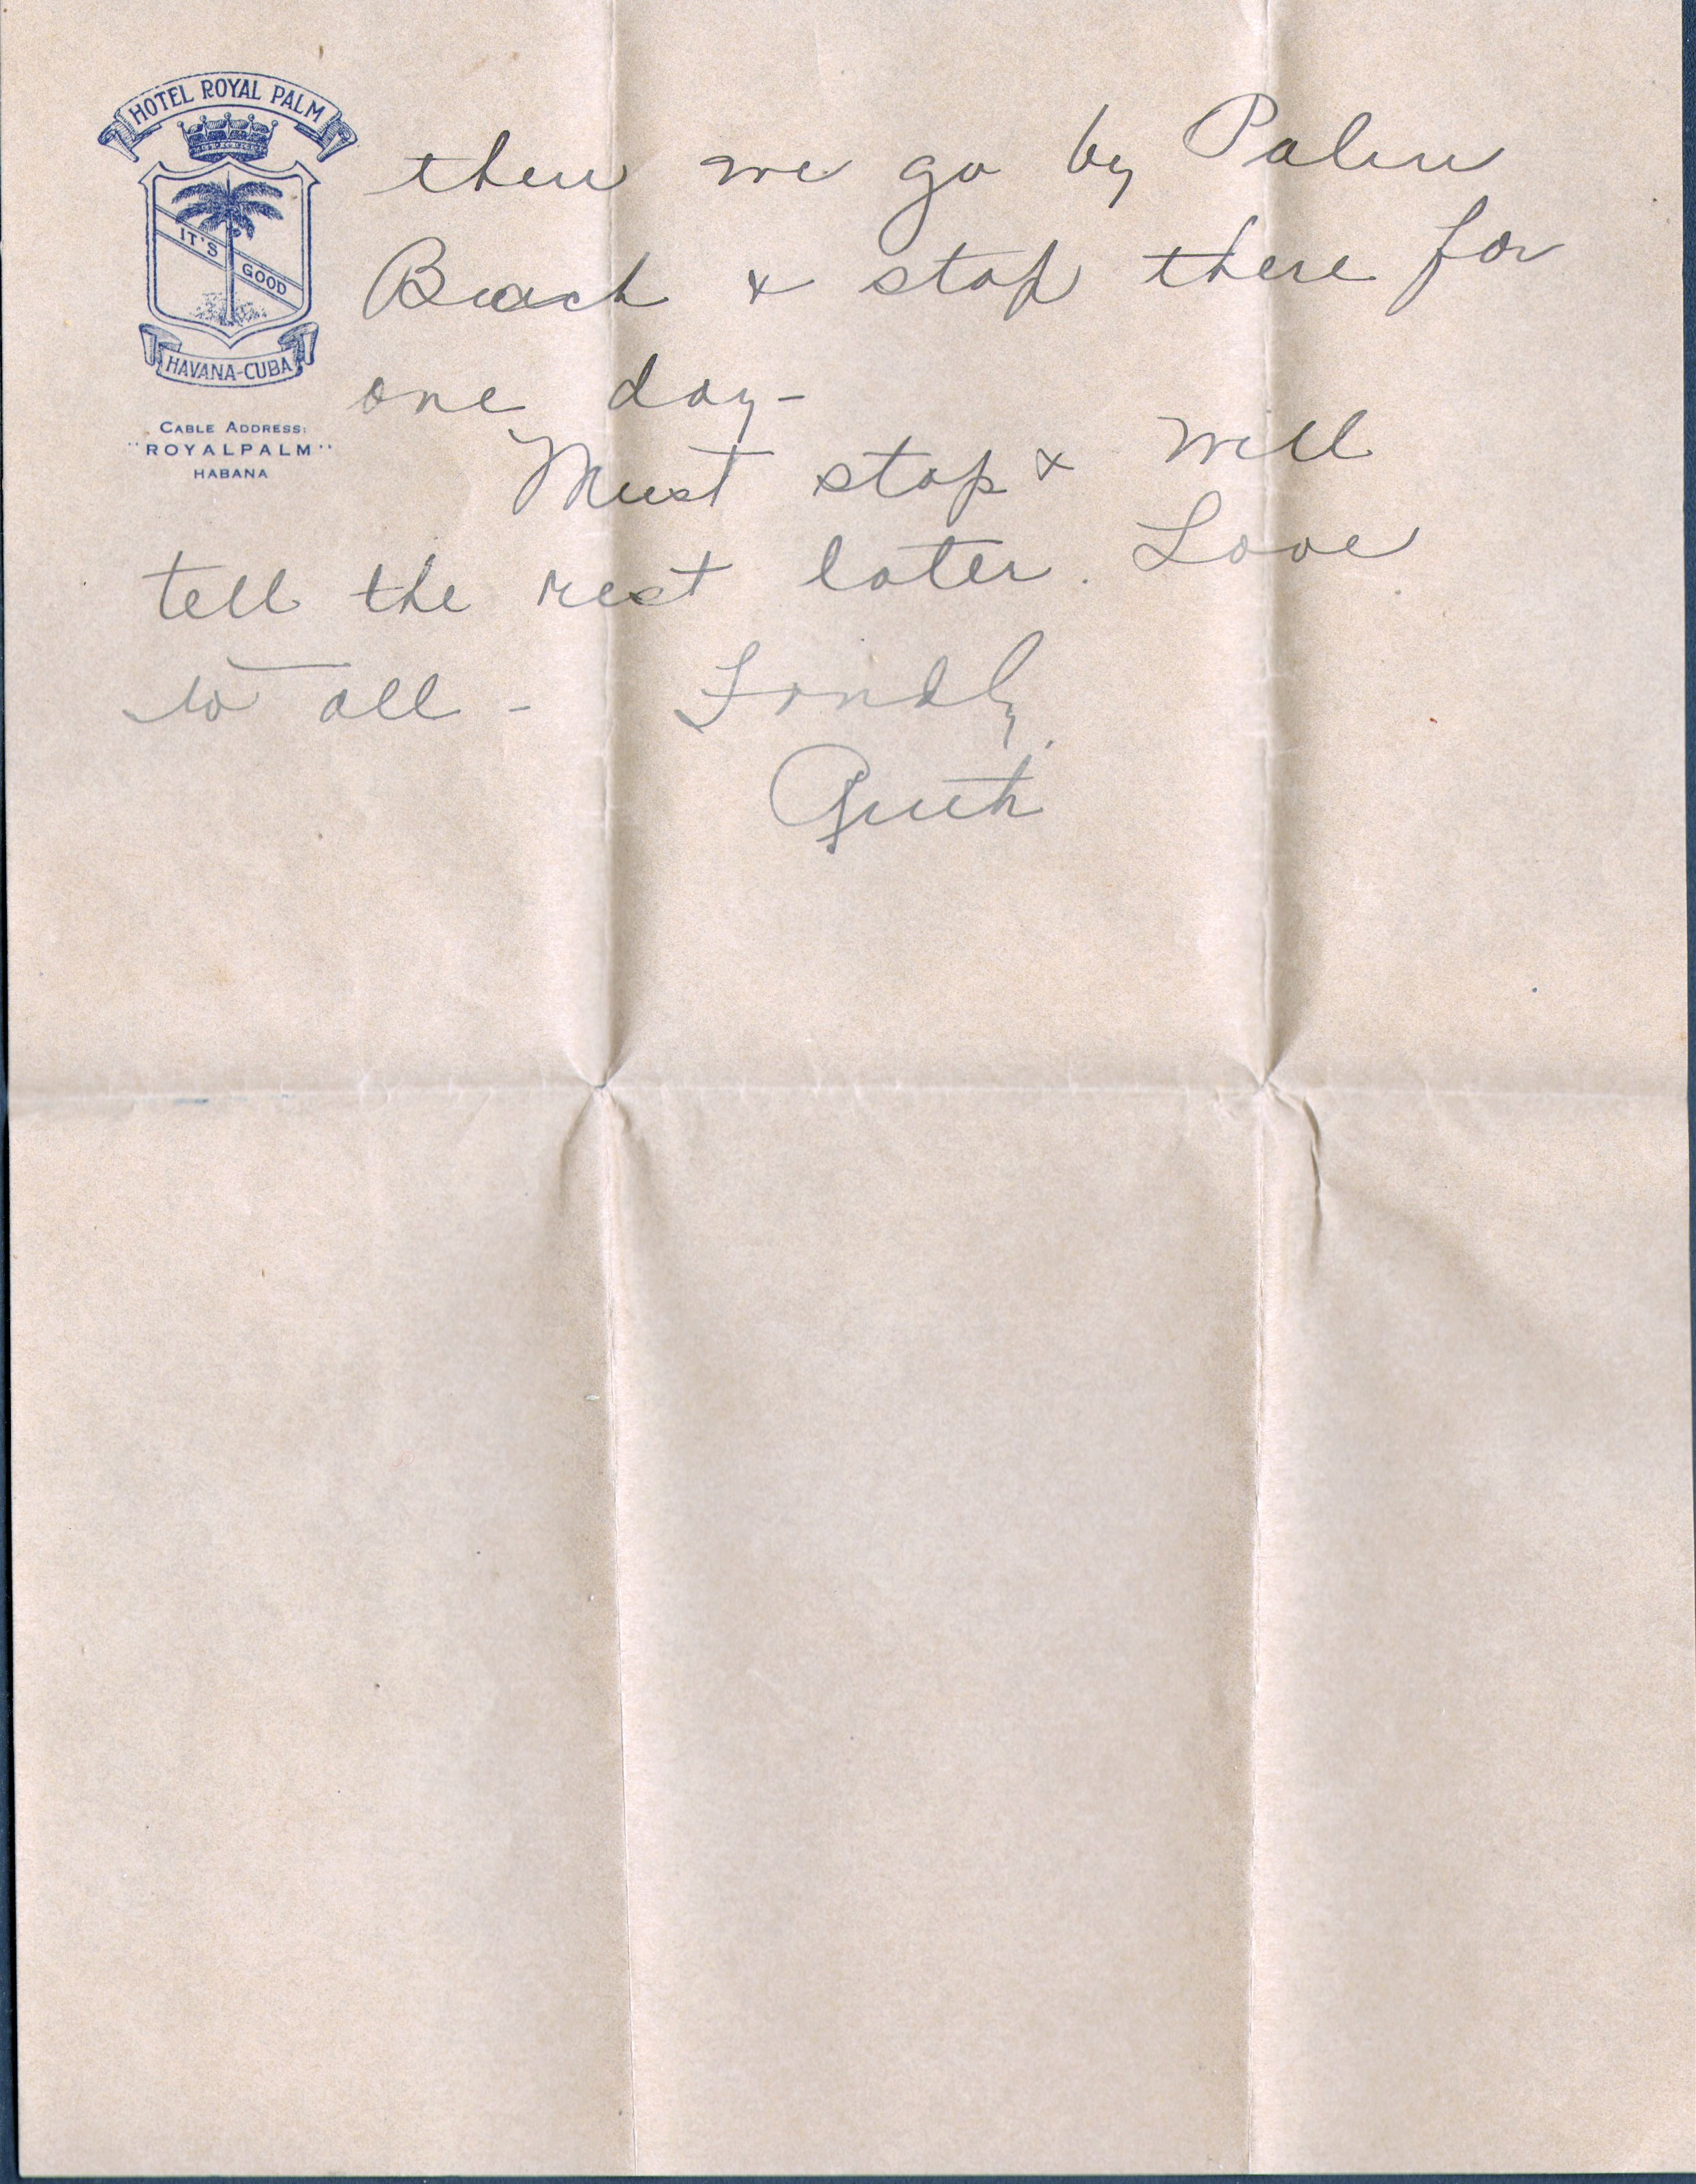 HOTEL ROYAL PALM
IT'S GOOD
HAVANA-CUBA
CABLE ADDRESS:
"ROYALPALM"
HABANA
then we go by Palm
Beach & stop there for
one day-
Must stop & will
tell the rest later. Love
to all - Fondly,
Ruth